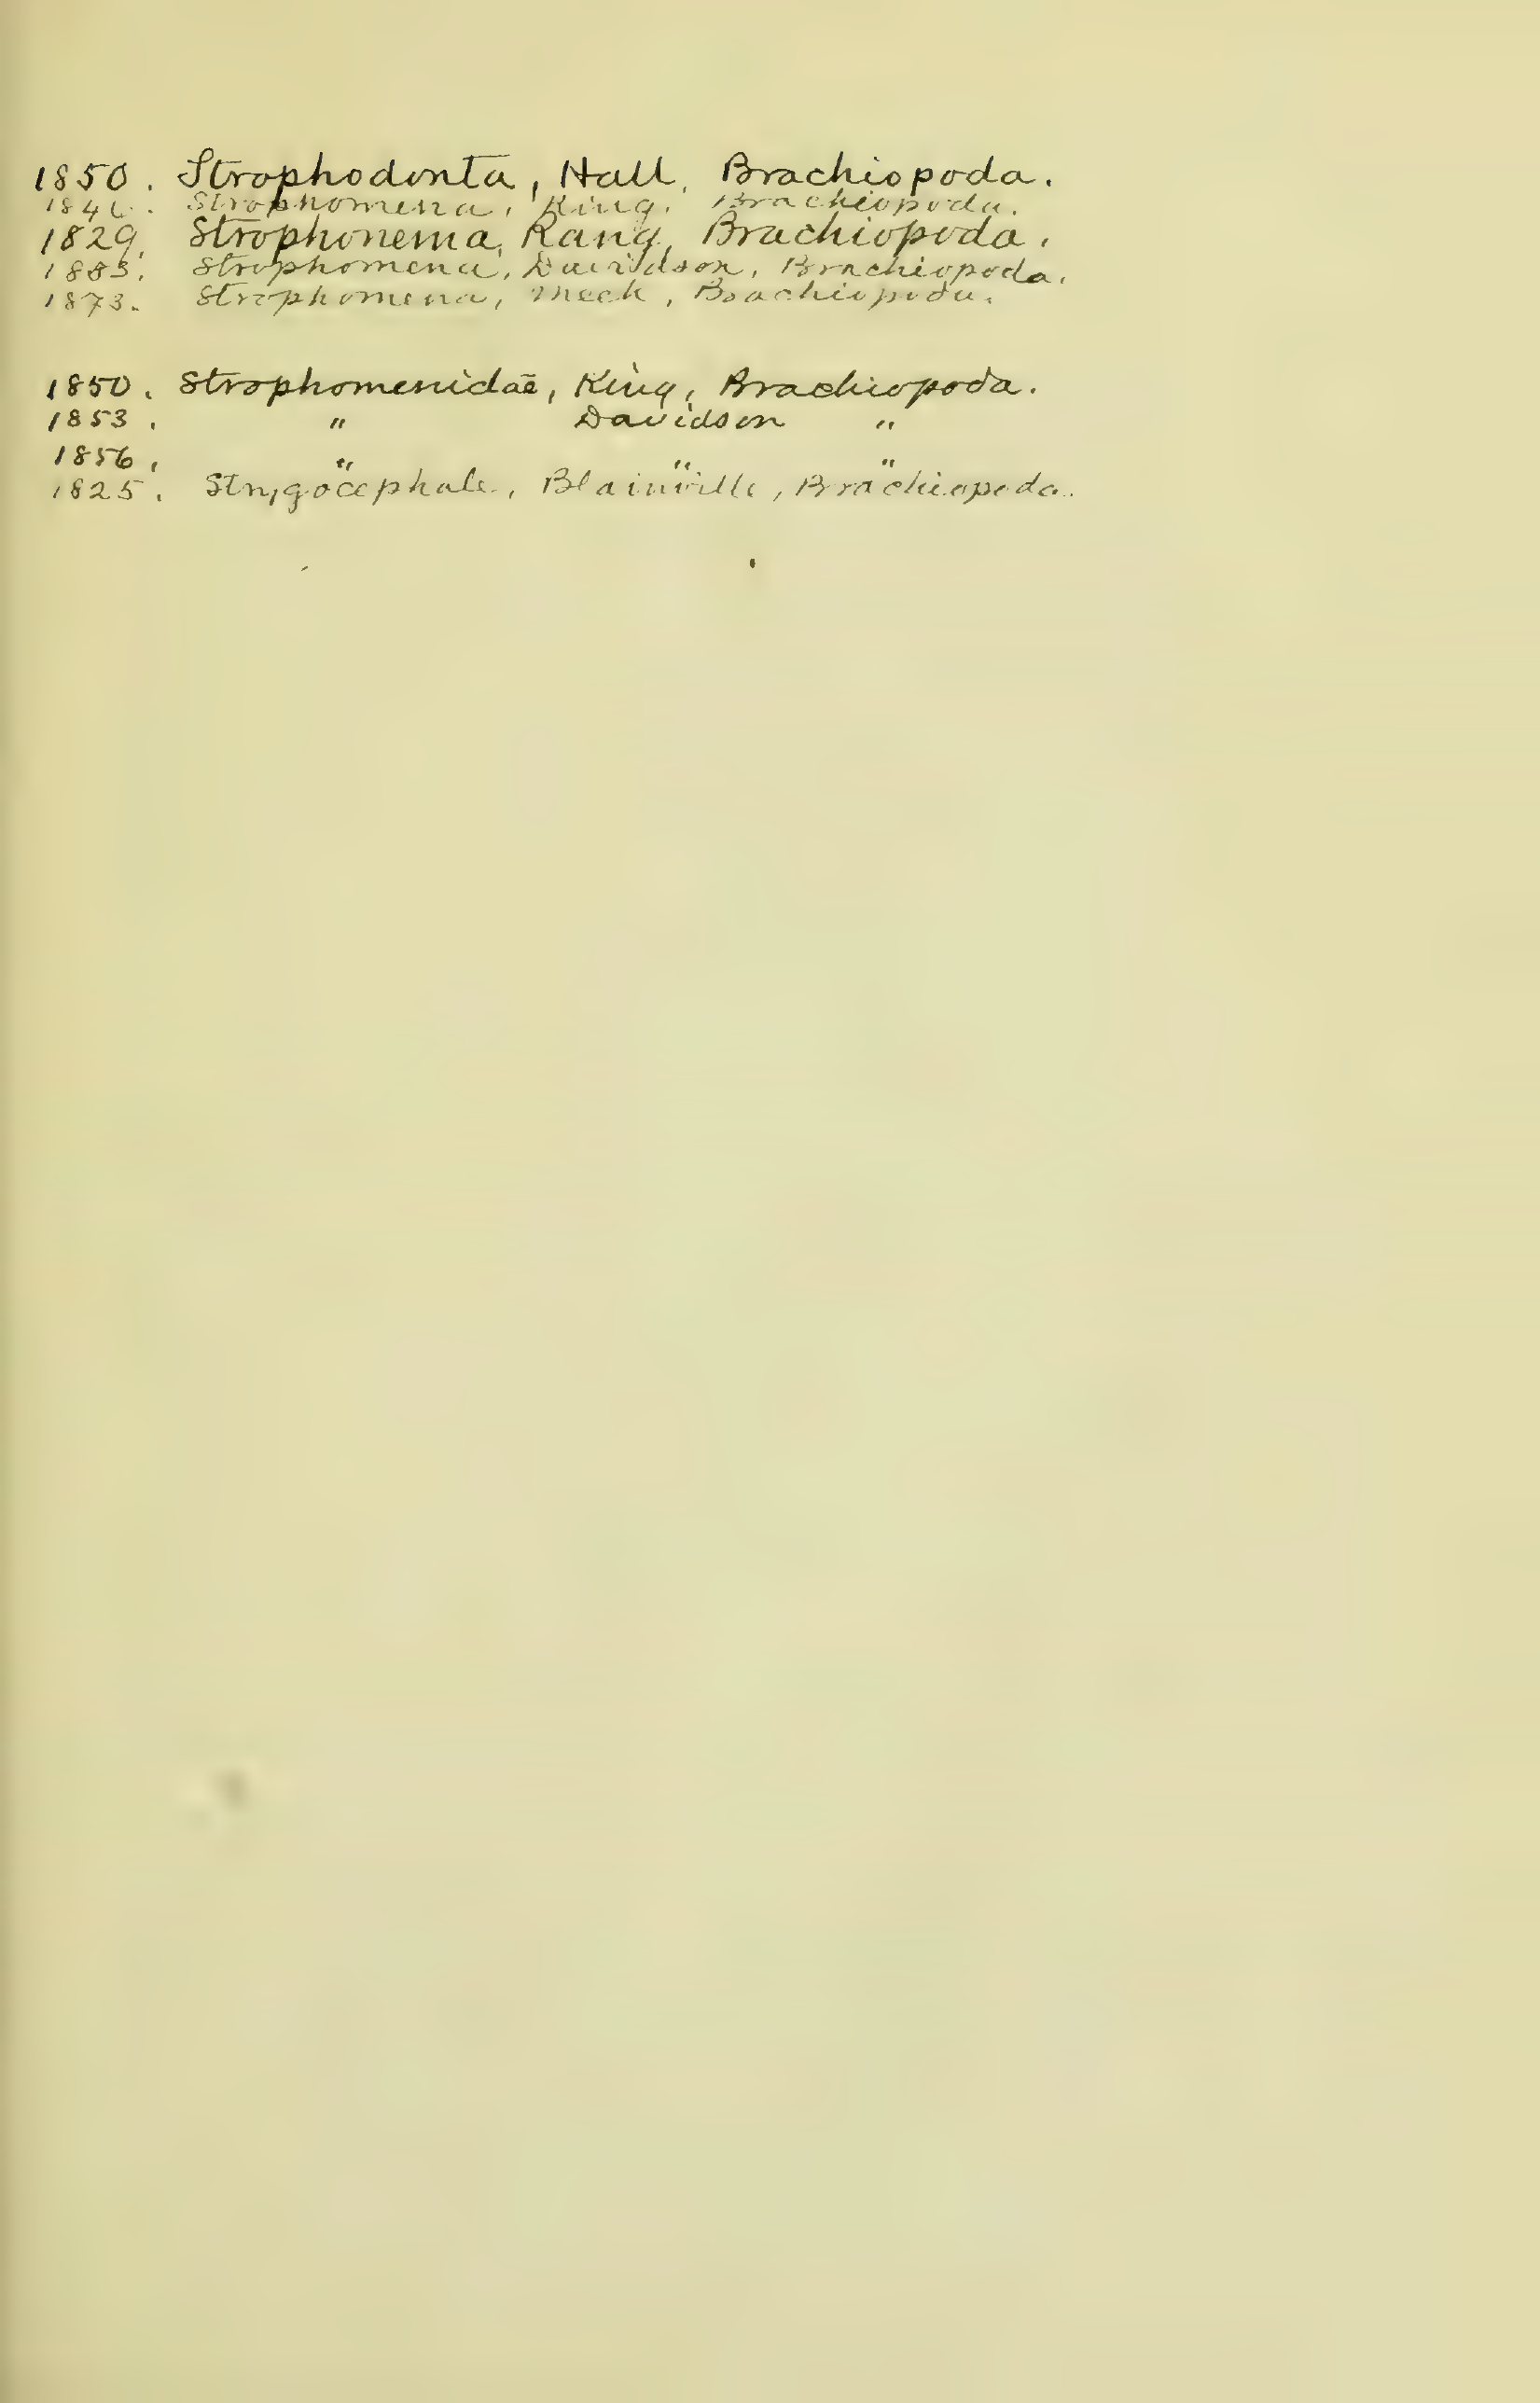 1850. Strophodonta, Hall, Brachiopoda.
1846. Strophomena, King, Brachiopoda.
1829. Strophonema, Rang, Brachiopoda.
1883. Strophomena, Davidson, Brachiopoda.
1873. Strophomena, Meek, Brachiopoda.
1850. Strophomenidae, King, Brachiopoda.
1853. " Davidson "
1856. " " "
1825. Strygocephale, Blainville, Brachiopoda.